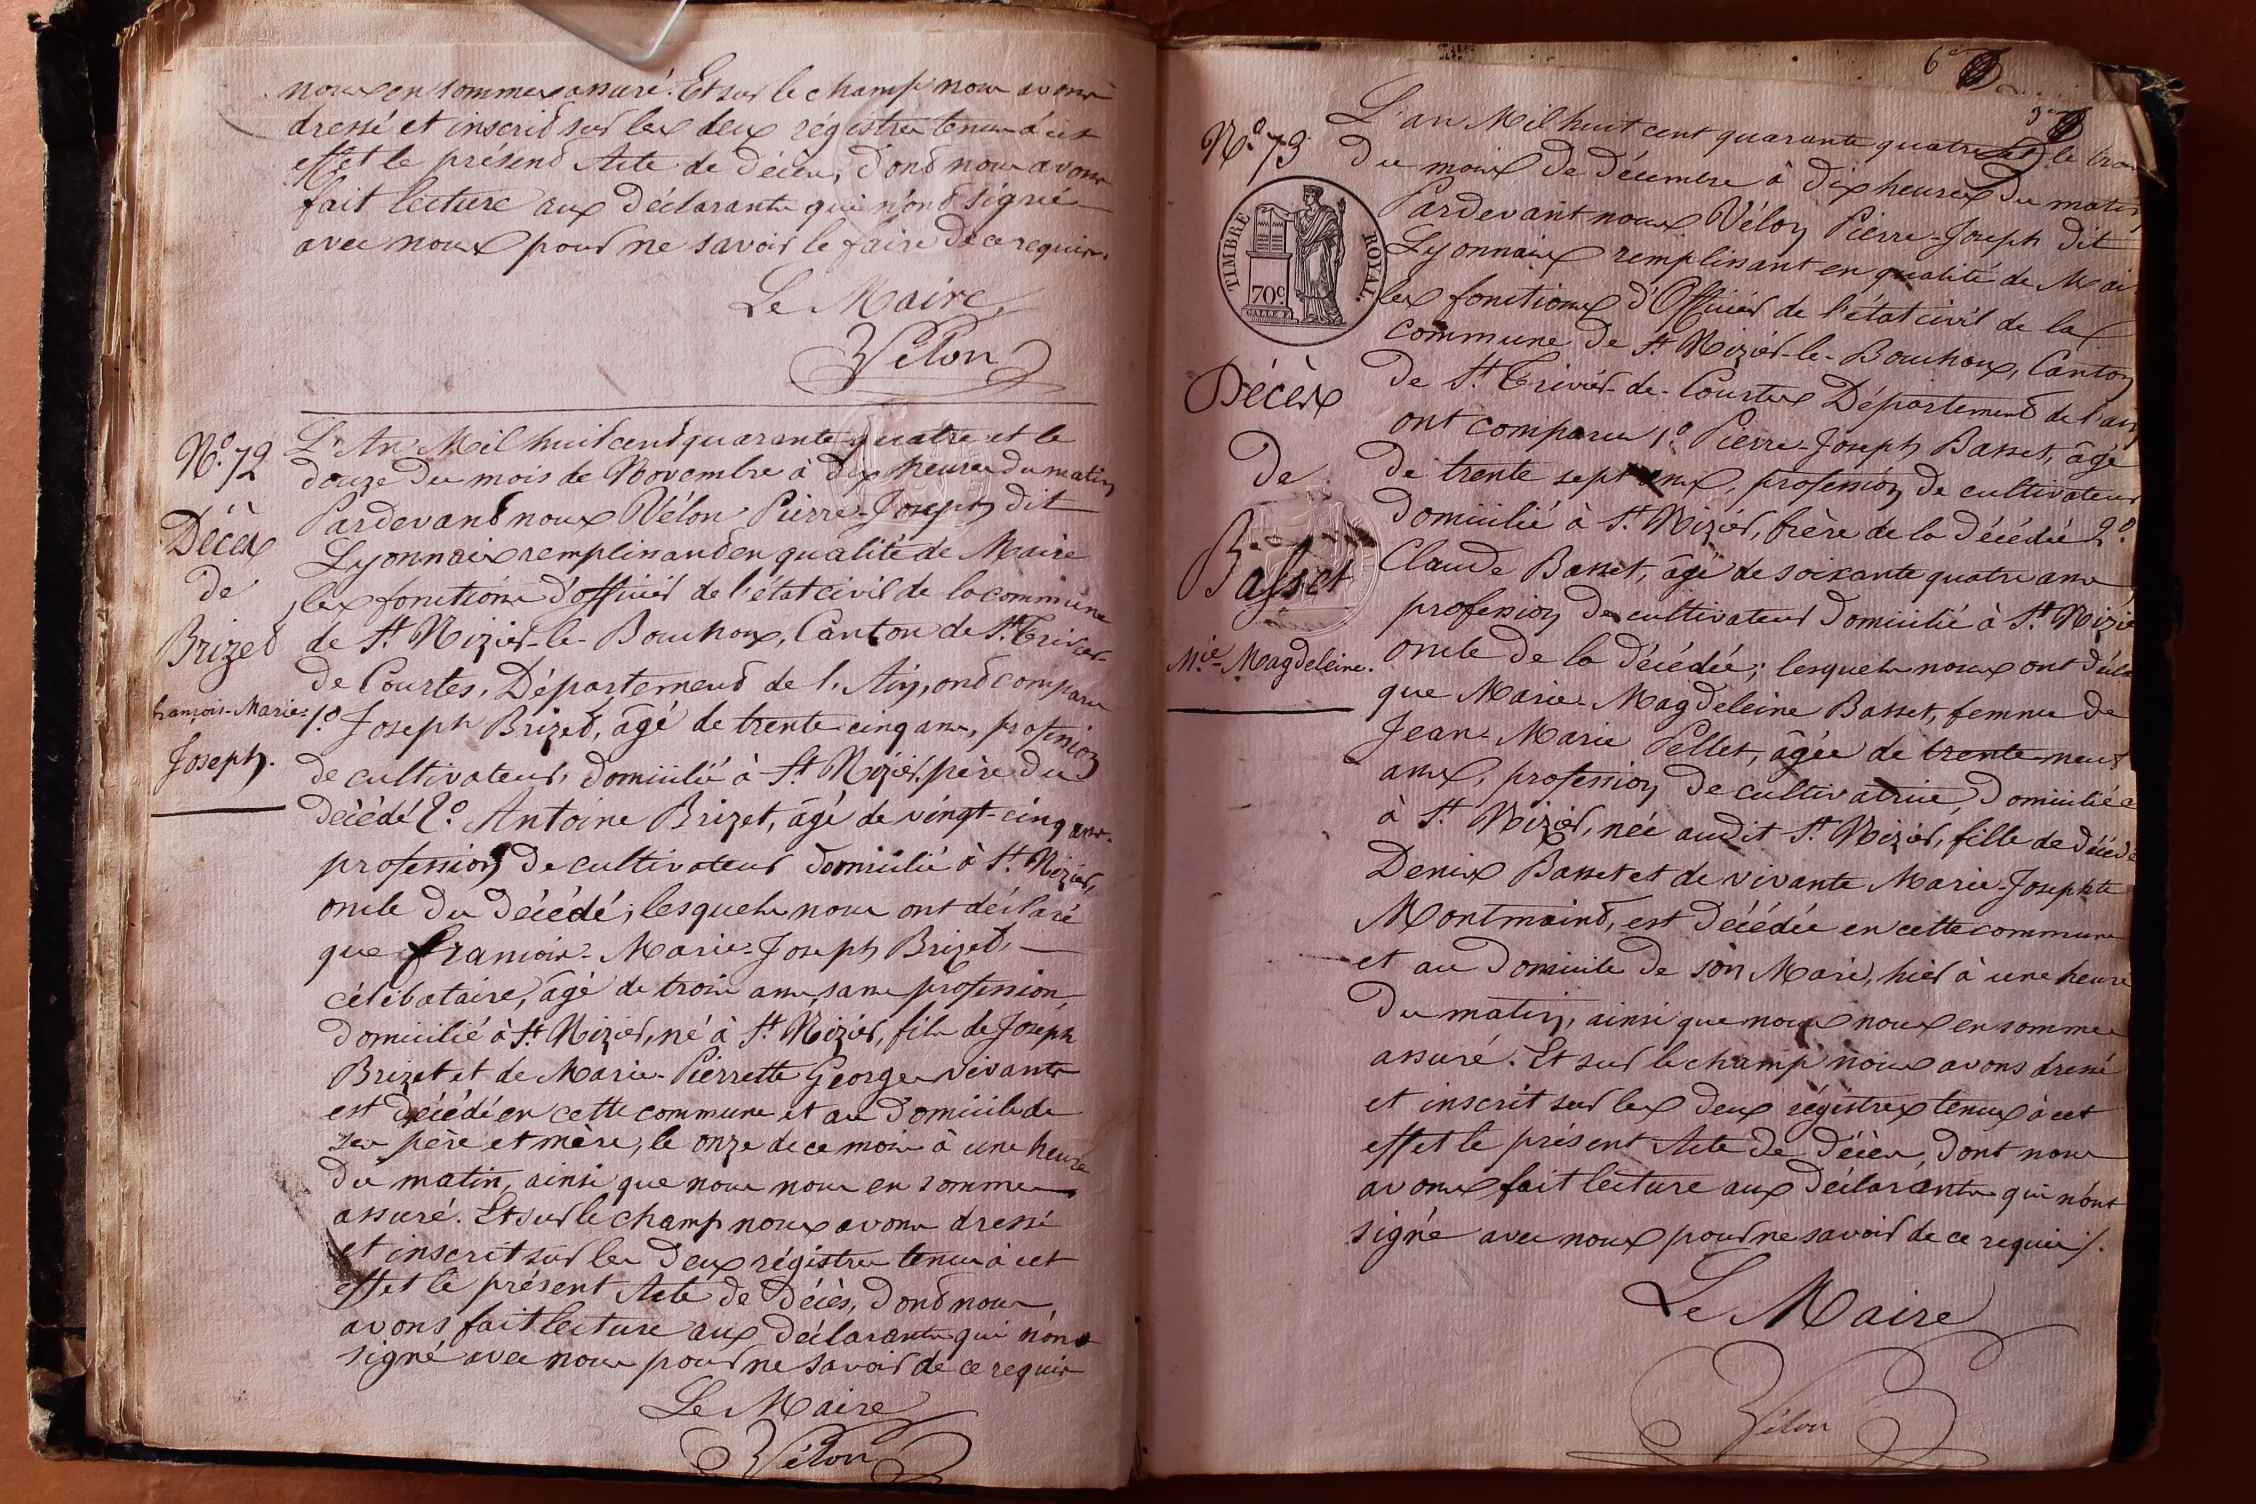 nous en sommes assuré. Et sur le champ nous avons
dressé et inscrit sur les deux régistres tenus à cet
effet le présent Acte de décès, dont nous avons
fait lecture aux déclarants qui n'ont signé
avec nous pour ne savoir le faire de ce requis.
Le Maire
Vélon
N.º 72
Décès
de
Brizet
françois-Marie-
Joseph.
L'An Mil huit cent quarante quatre et le
douze du mois de Novembre à dix heures du matin
Pardevant nous Vélon Pierre-Joseph dit
Lyonnais remplissant en qualité de Maire
les fonctions d'officier de l'état civil de la commune
de St Nizier-le-Bouchoux, Canton de St Trivier-
de Courtes, Département de l'Ain, ont comparu
1.º Joseph Brizet, âgé de trente cinq ans, profession
de cultivateur, domicilié à St Nizier, père du
décédé 2.º Antoine Brizet, âgé de vingt-cinq ans.
profession de cultivateur domicilié à St Nizier,
oncle du décédé; lesquels nous ont déclaré
que françois-Marie-Joseph Brizet
célibataire, âgé de trois ans, sans profession,
domicilié à St Nizier, né à St Nizier, fils de Joseph
Brizet et de Marie-Pierrette George vivants
est décédé en cette commune et au domicile de
ses père et mère, le onze de ce mois à une heure
du matin, ainsi que nous nous en sommes
assuré. Et sur le champ nous avons dressé
et inscrit sur les deux régistres tenus à cet
effet le présent Acte de décès, dont nous
avons fait lecture aux déclarants qui n'ont
signé avec nous pour ne savoir de ce requis
Le Maire
Vélon
6e
N.º 73
TIMBRE ROYAL.
70c
Décès
de
Basset
Mie Magdeleine.
L'an Mil huit cent quarante quatre et le
du mois de Décembre à dix heures du matin
Pardevant nous Vélon Pierre-Joseph dit
Lyonnais remplissant en qualité de Mai
les fonctions d'Officier de l'état civil de la
commune de St Nizier-le-Bouchoux, Canton
de St Trivier-de-Courtes Département de l'ain
ont comparu 1.º Pierre-Joseph Basset, âgé
de trente sept ans, profession de cultivateur
domicilié à St Nizier, frère de la décédée 2.º
Claude Basset, âgé de soixante quatre ans
profession de cultivateur domicilié à St Nizie
oncle de la décédée; lesquels nous ont décla
que Marie-Magdeleine Basset, femme de
Jean-Marie Pellet, âgée de trente-neuf
ans, profession de cultivatrice domiciliée
à St Nizier, née audit St Nizier, fille de décédé
Denix Basset et de vivante Marie-Josephte
Montmaint, est décédée en cette commune
et au domicile de son Mari, hier à une heure
du matin, ainsi que nous nous en sommes
assuré. Et sur le champ nous avons dressé
et inscrit sur les deux régistres tenus à cet
effet le présent Acte de décès, dont nous
avons fait lecture aux déclarants qui n'ont
signé avec nous pour ne savoir de ce requis /.
Le Maire
Vélon